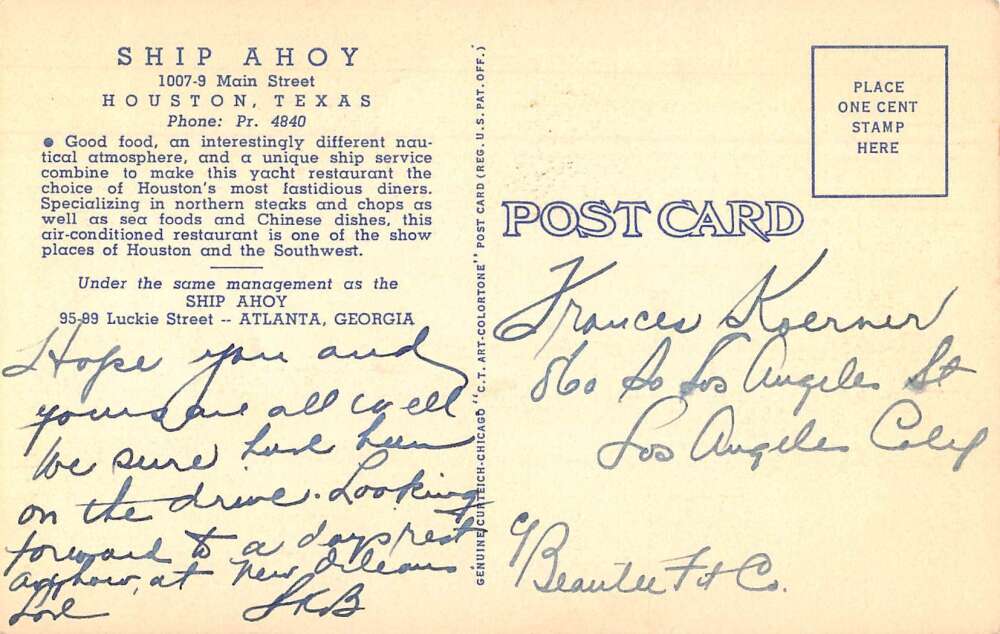 SHIP AHOY
1007-9 Main Street
HOUSTON, TEXAS
Phone: Pr. 4840
● Good food, an interestingly different nau-
tical atmosphere, and a unique ship service
combine to make this yacht restaurant the
choice of Houston's most fastidious diners.
Specializing in northern steaks and chops as
well as sea foods and Chinese dishes, this
air-conditioned restaurant is one of the show
places of Houston and the Southwest.
Under the same management as the
SHIP AHOY
95-99 Luckie Street -- ATLANTA, GEORGIA
Hope you and
yours are all well
We sure have been
on the drive. Looking
forward to a days rest
anyhow, at New Orleans.
Love
GENUINE CURTEICH-CHICAGO "C.T. ART-COLORTONE" POST CARD (REG. U.S. PAT. OFF.)
PLACE
ONE CENT
STAMP
HERE
POST CARD
Frances Koerner
860 So Los Angeles St
Los Angeles Calif
c/ Beautee Fit Co.